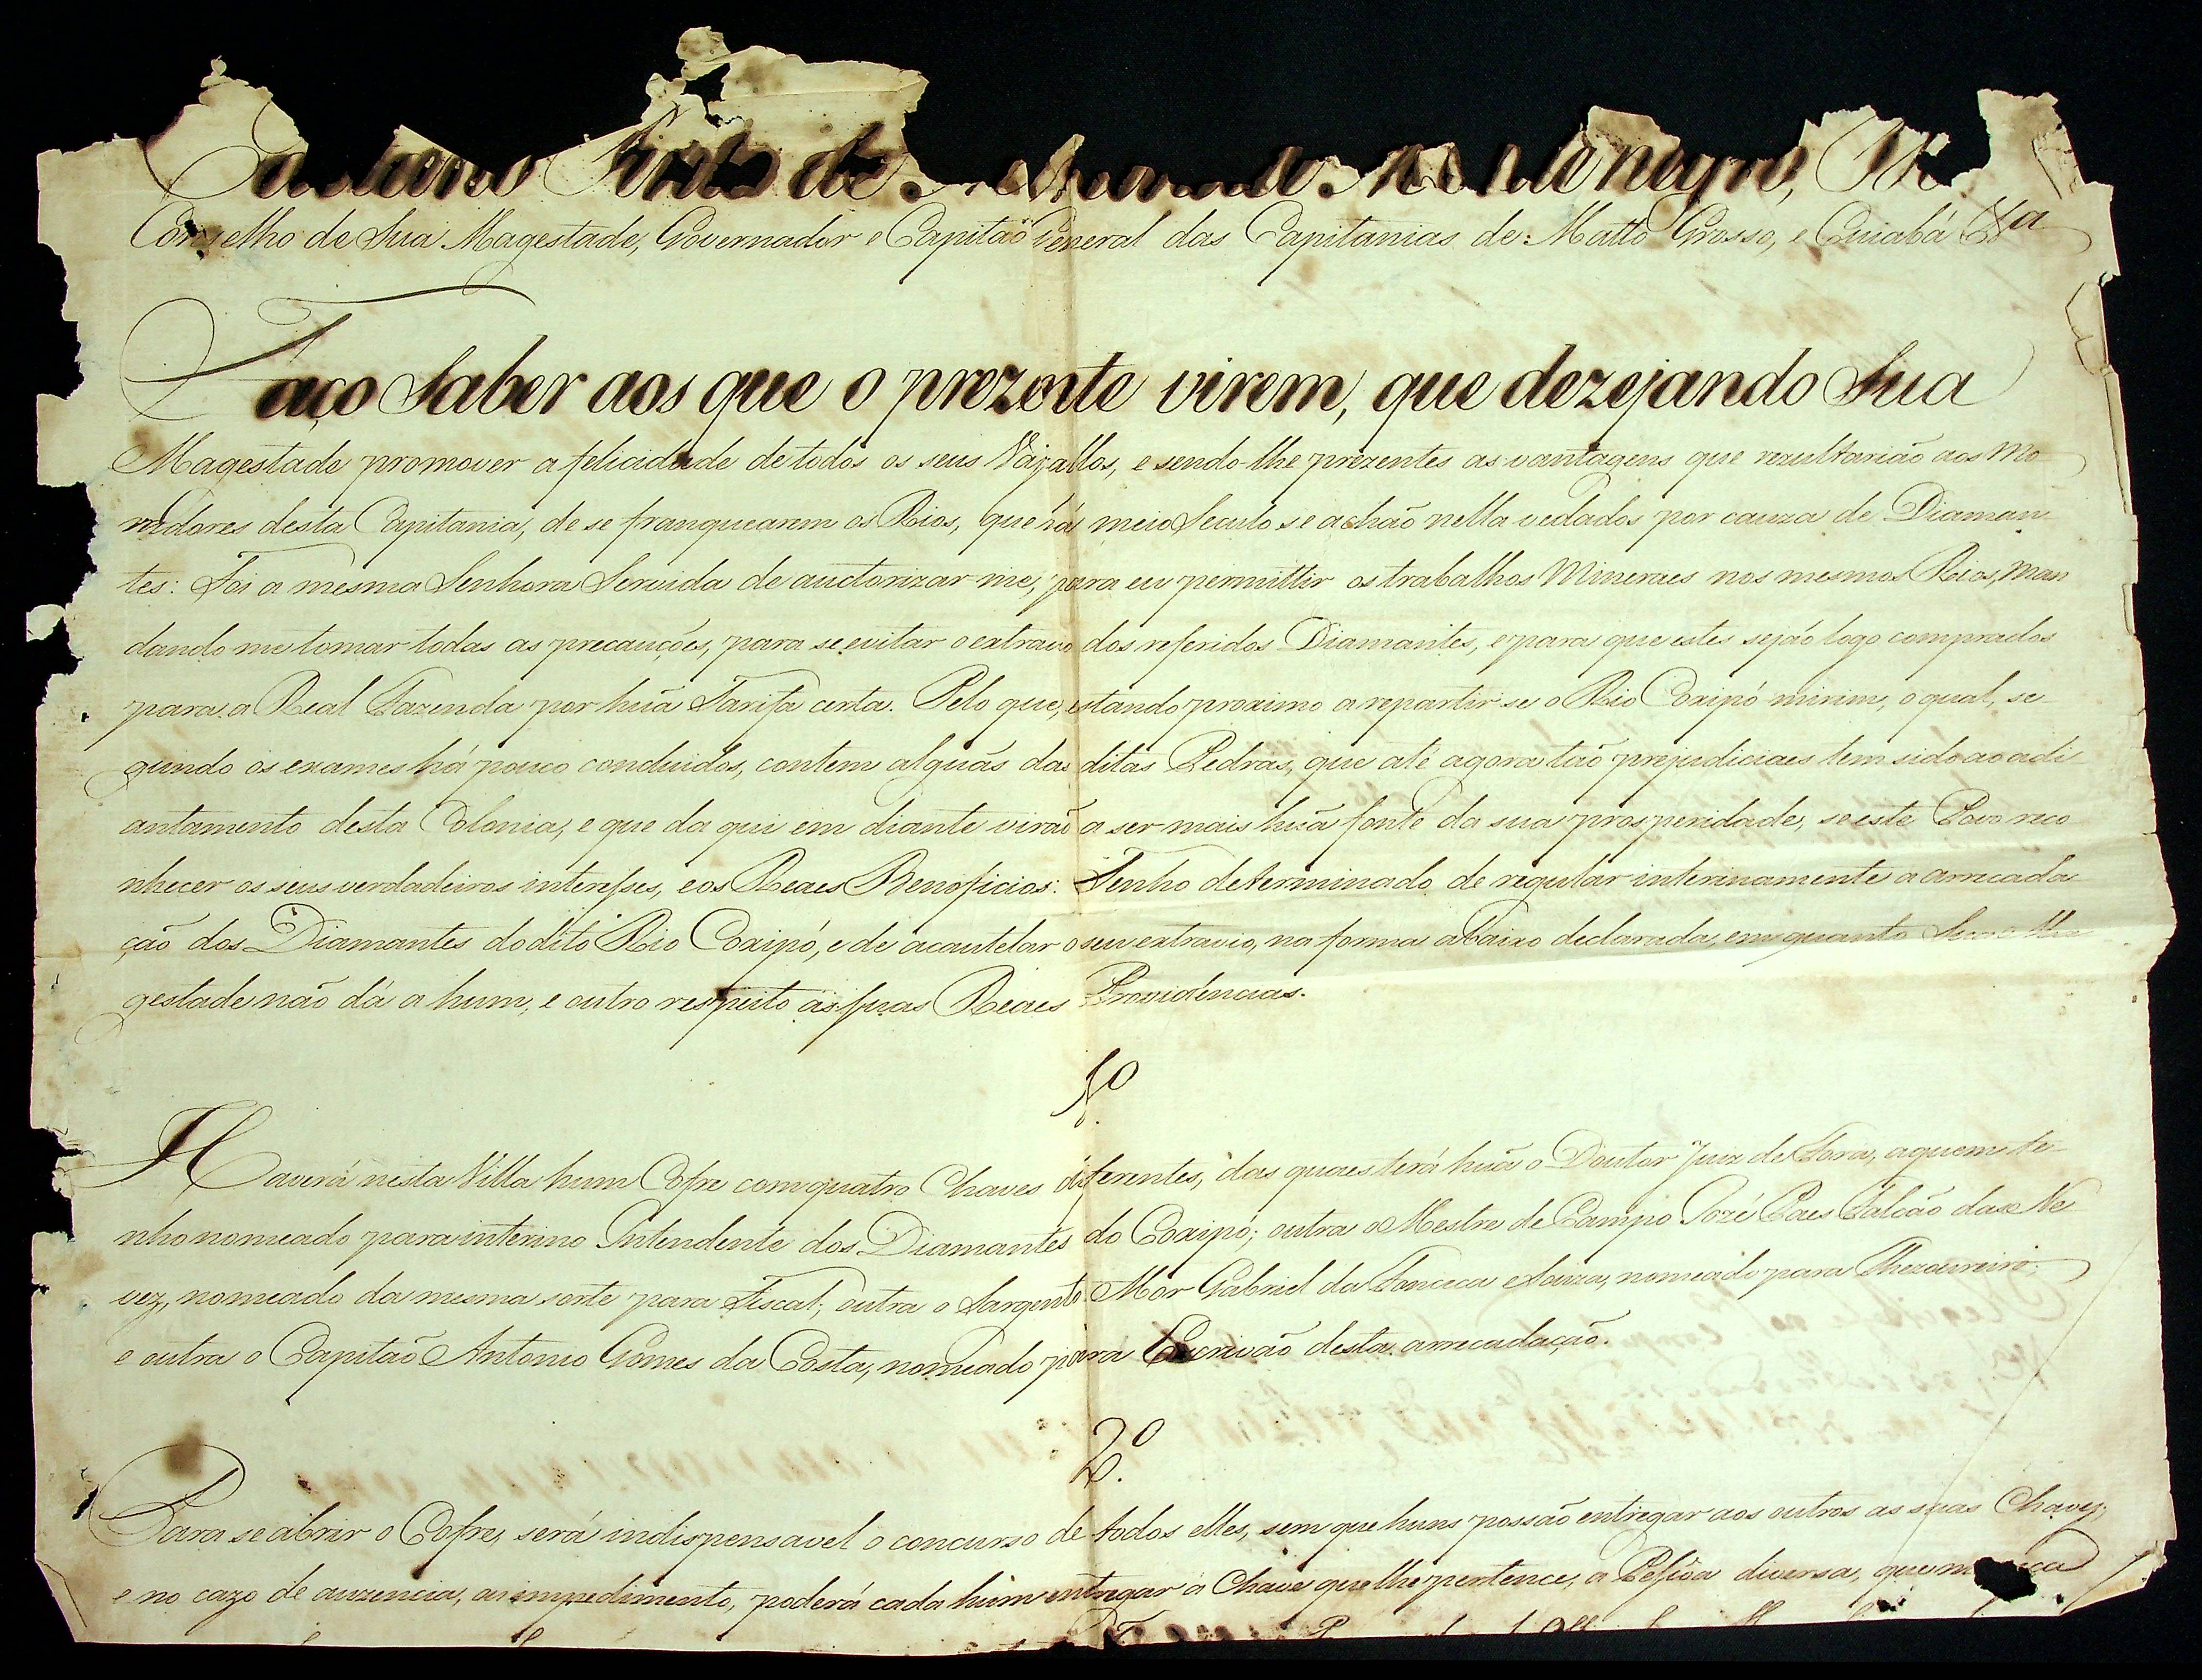 Caetano Pinto de Miranda Montenegro, do
Conselho de Sua Magestade, Governador e Capitaõ General das Capitanias de Matto Grosso, e Cuiabá &a
Faço Saber aos que o prezente virem, que dezejando Sua
Magestade promover a felicidade de todos os seus Vaçallos, e sendo-lhe prezentes as vantagens que rezultariaõ aos Mo
radores desta Capitania, de se franquearem os Rios, que há meio Seculo se achaõ nella vedados por cauza de Diaman
tes: Foi a mesma Senhora Servida de auctorizar-me, para eu permittir os trabalhos Mineraes nos mesmos Rios, Man
dando me tomar todas as precauções, para se evitar o extravio dos referidos Diamantes, e para que estes sejaõ logo comprados
para a Real Fazenda por huã Tarifa certa. Pelo que, estando proximo a repartir-se o Rio Coxipó mirim, o qual, se
gundo os exames há pouco concluidos, contem alguãs das ditas Pedras, que até agora taõ prejudiciaes tem sido ao adi
antamento desta Colonia, e que da qui em diante viraõ a ser mais huã fonte da sua prosperidade, se este Povo reco
nhecer os seus verdadeiros interesses, e os Reaes Beneficios: Tenho determinado de regular interinamente a arrecada
çaõ dos Diamantes do dito Rio Coxipó, e de acautelar o seu extravio, na forma abaixo declarada, em quanto Sua Ma
gestade naõ dá a hum, e outro respeito as suas Reaes Providencias.
1º
Haverá nesta Villa hum Cofre com quatro Chaves differentes, das quaes terá huã o Doutor Juiz de Fora, a quem te
nho nomeado para interino Intendente dos Diamantes do Coxipó; outra o Mestre de Campo Jozé Paes Falcaõ das Ne
vez, nomeado da mesma sorte para Fiscal; outra o Sargento Mór Gabriel da Fonceca e Souza, nomeado para Thezoureiro:
e outra o Capitaõ Antonio Gomes da Costa, nomeado para Escrivaõ desta arrecadaçaõ.
2º
Para se abrir o Cofre, será indispensavel o concurso de todos elles, sem que huns possaõ entregar aos outros as suas Chaves,
e no cazo de auzencia, ou impedimento, poderá cada hum entregar a Chave que lhe pertence, a Pessoa diversa, que